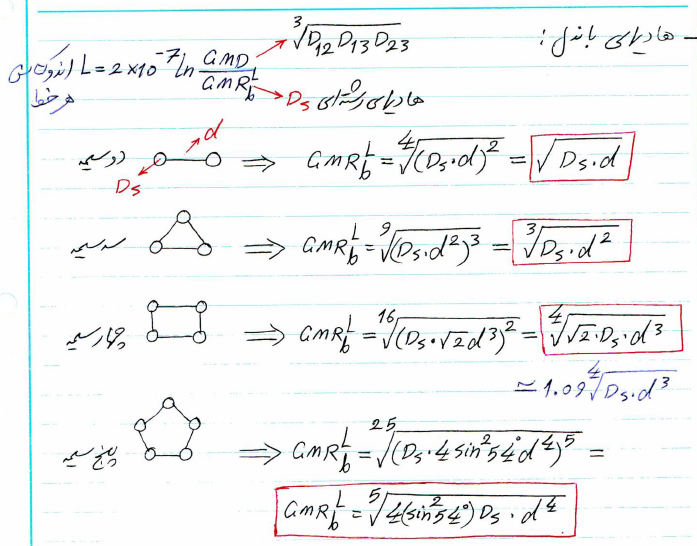 - هادیهای باندل :
∛D₁₂D₁₃D₂₃
L = 2×10⁻⁷ ln GMD/GMR_b^L
هر خط
Ds هادیهای رشته‌ای
دو سیمه Ds d ⇒ GMR_b^L = ⁴√(Ds·d)² = √Ds·d
سه سیمه ⇒ GMR_b^L = ⁹√(Ds·d²)³ = ³√Ds·d²
چهار سیمه ⇒ GMR_b^L = ¹⁶√(Ds·√2d³)² = ⁴√√2·Ds·d³
≃ 1.09 ⁴√Ds·d³
پنج سیمه ⇒ GMR_b^L = ²⁵√(Ds·4sin²54°d⁴)⁵ =
GMR_b^L = ⁵√4(sin²54°)Ds·d⁴